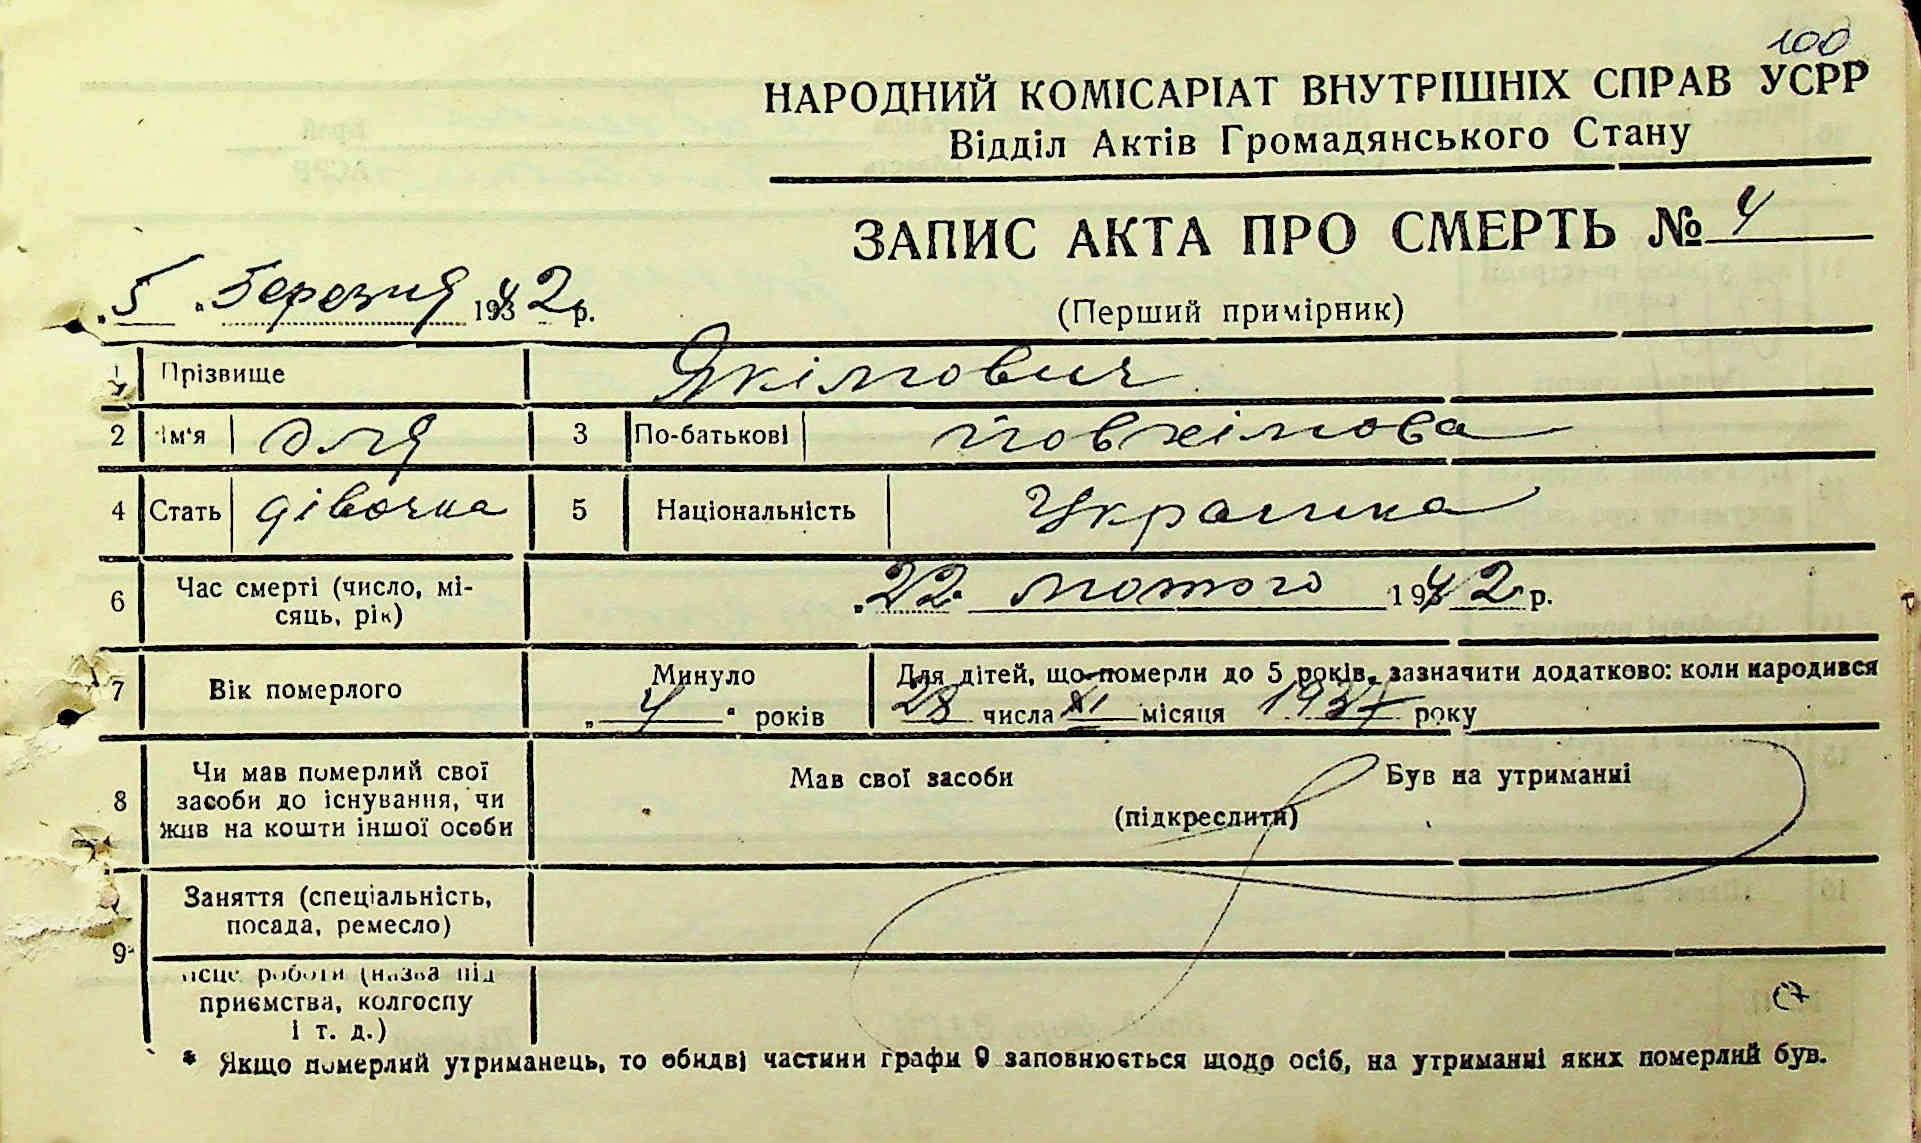 100
НАРОДНИЙ КОМІСАРІАТ ВНУТРІШНІХ СПРАВ УСРР
Відділ Актів Громадянського Стану
ЗАПИС АКТА ПРО СМЕРТЬ № 4
„5" Березня 1942 р.
(Перший примірник)
1 Прізвище Якімович
2 Ім'я Оля 3 По-батькові Йовхімова
4 Стать дівочка 5 Національність Украинка
6 Час смерті (число, мі-
сяць, рік) „22" лютого 1942 р.
7 Вік померлого Минуло „4" років Для дітей, що померли до 5 років, зазначити додатково: коли народився
28 числа XI місяця 1937 року
8 Чи мав померлий свої
засоби до існування, чи
жив на кошти іншої особи
Мав свої засоби Був на утриманні
(підкреслити)
9 Заняття (спеціальність,
посада, ремесло)
місце роботи (назва під
приємства, колгоспу
і т. д.)
* Якщо померлий утриманець, то обидві частини графи 9 заповнюється щодо осіб, на утриманні яких померлий був.